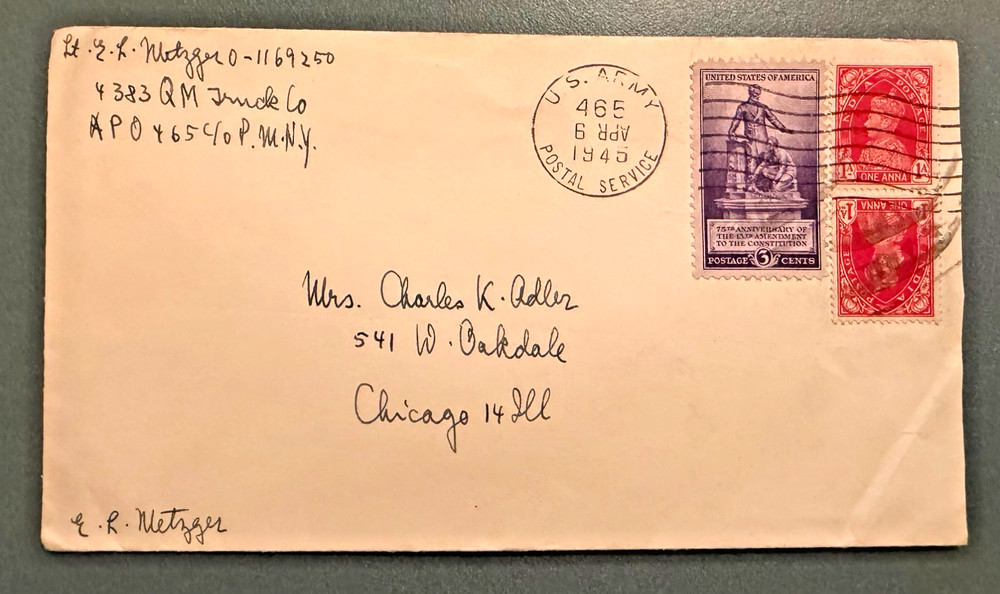 Lt. E. L. Metzger O-1169250
4383 QM Truck Co
APO 465 c/o P.M.N.Y.
U.S. ARMY
465
APR 9
1945
POSTAL SERVICE
UNITED STATES OF AMERICA
75TH ANNIVERSARY OF
THE 13TH AMENDMENT
TO THE CONSTITUTION
POSTAGE 3 CENTS
INDIA POSTAGE
1A ONE ANNA 1A
1A ONE ANNA 1A
INDIA POSTAGE
Mrs. Charles K. Adler
541 W. Oakdale
Chicago 14 Ill
E. L. Metzger